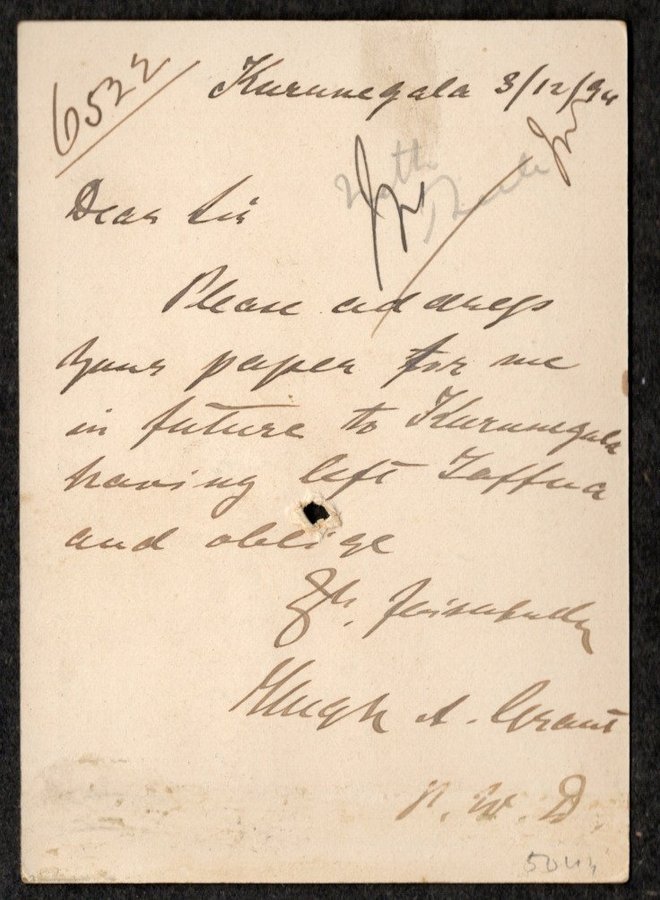 6522
Kurunegala 3/12/94
Dear Sir
Please address
your paper for me
in future to Kurunegala
having left Jaffna
and oblige
Yrs. faithfully
Hugh A. Grant
P. W. D.